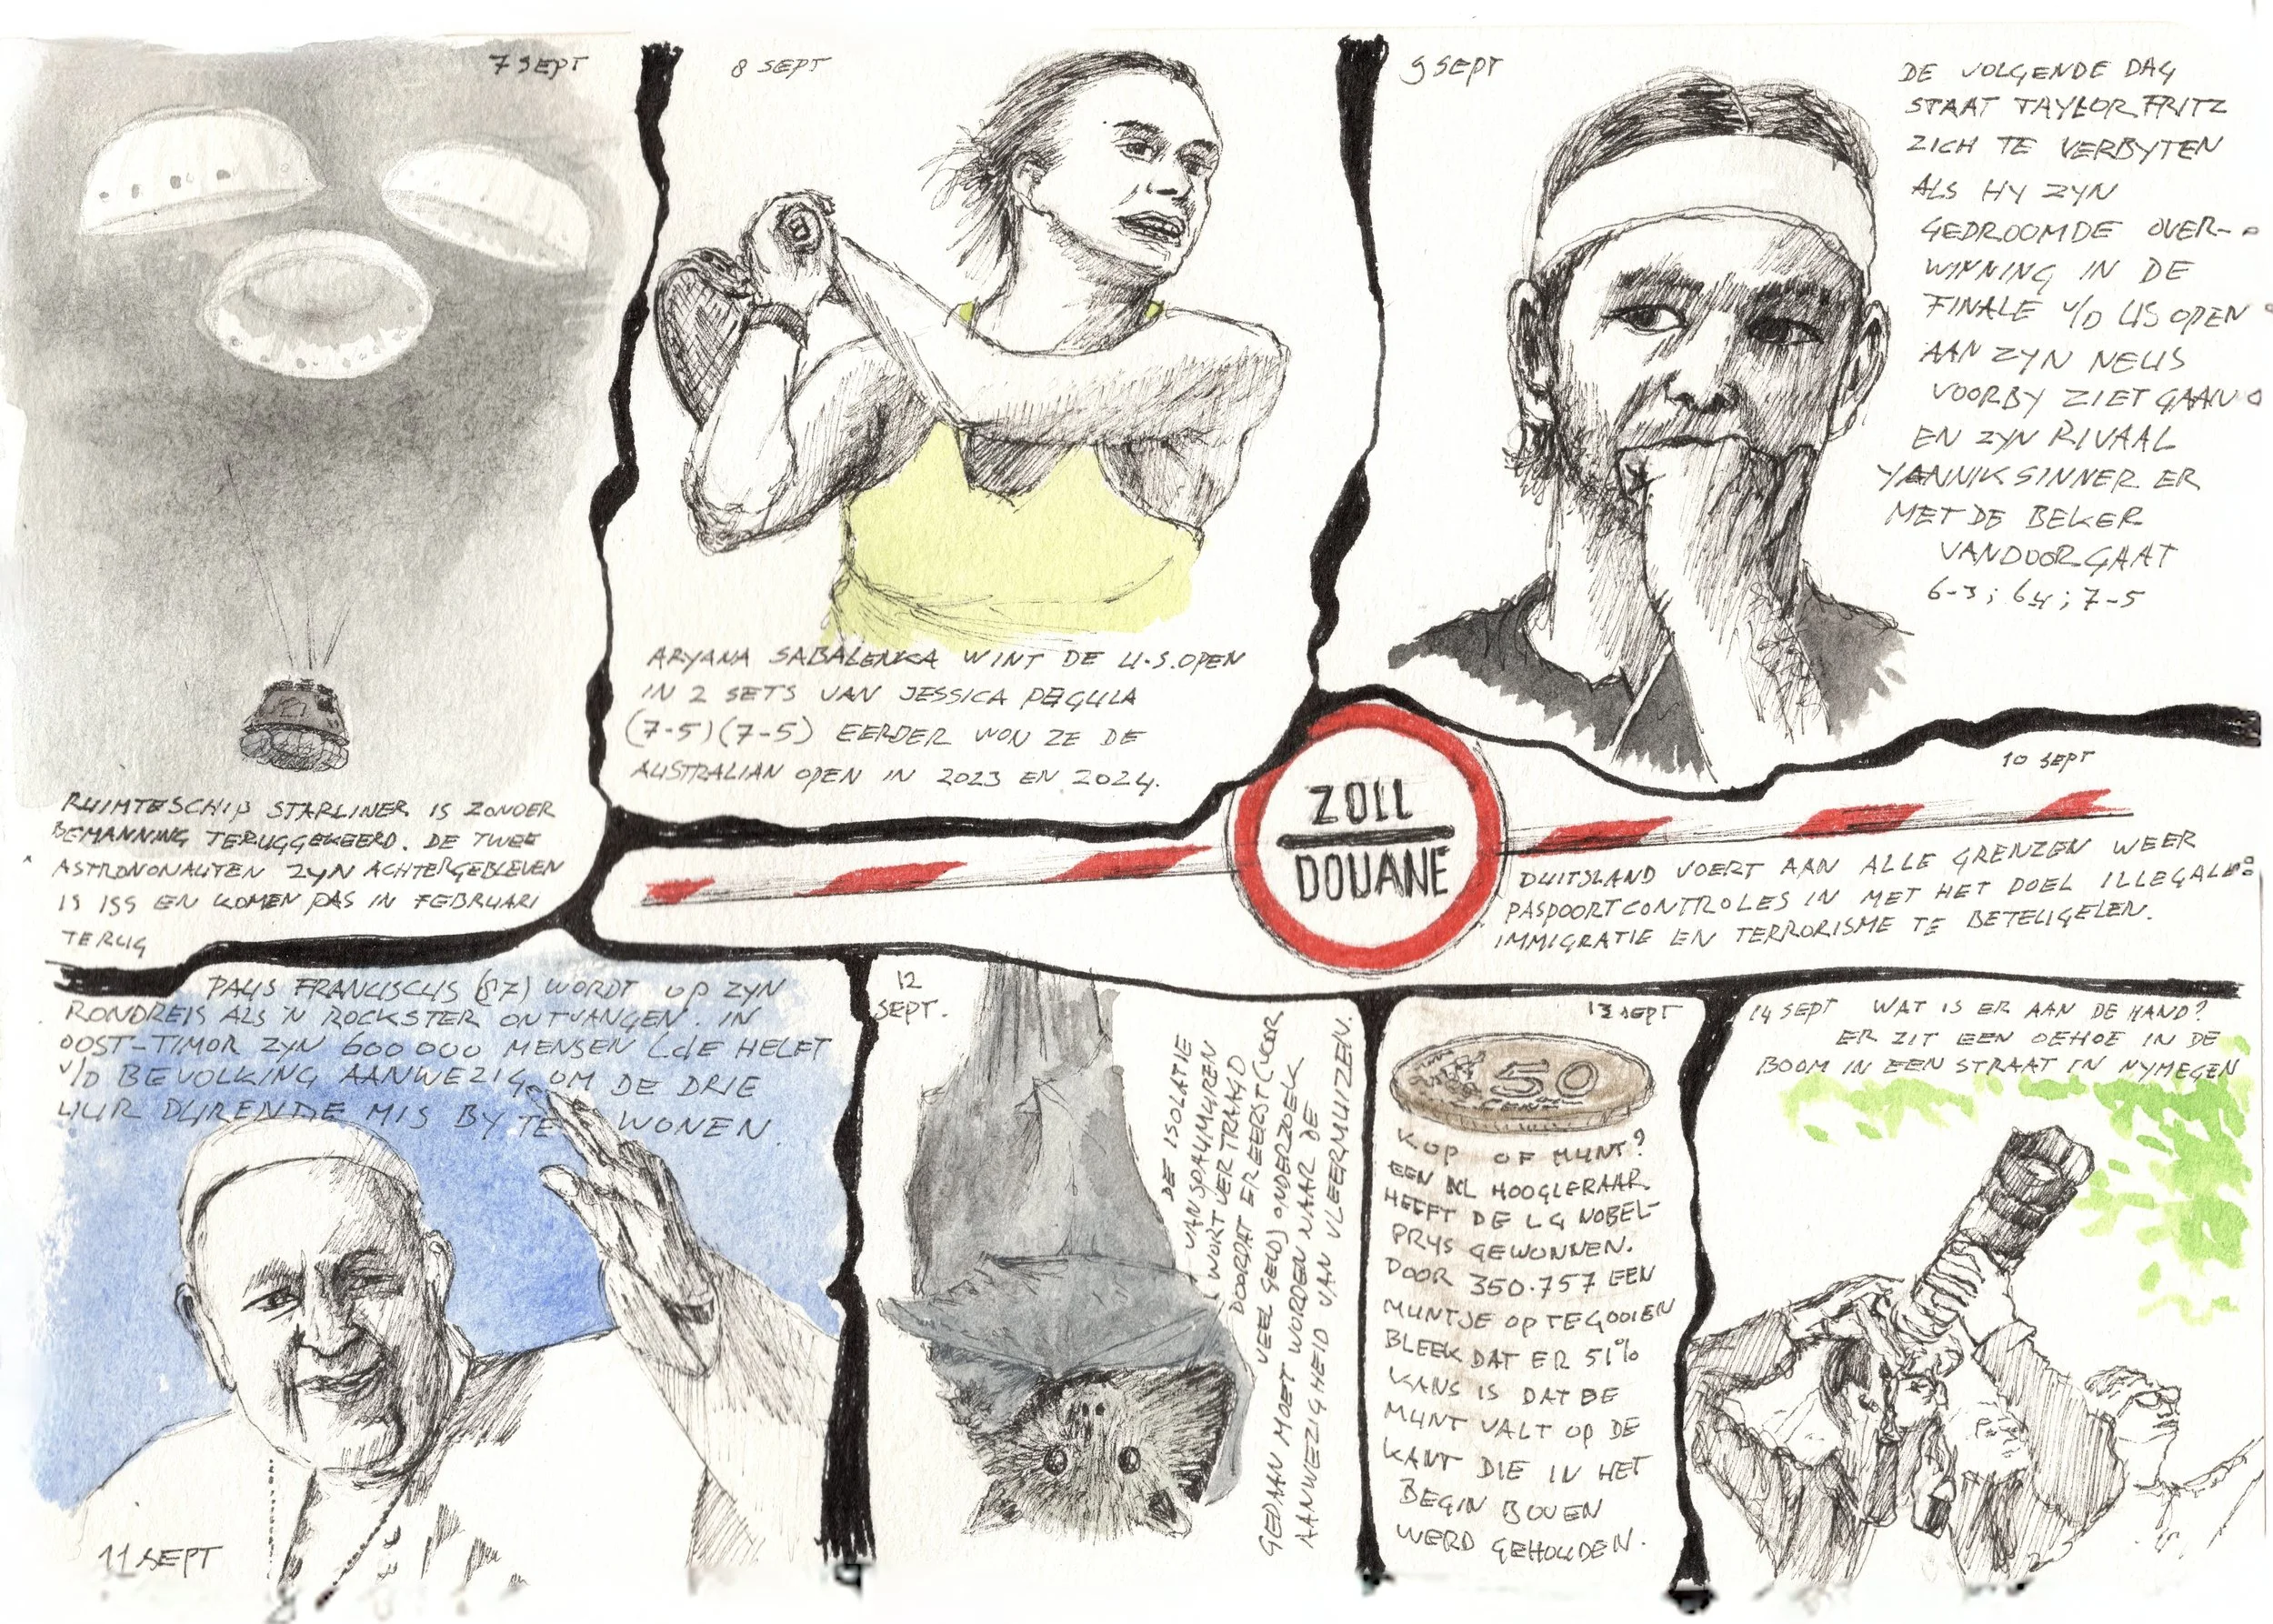 7 SEPT
RUIMTESCHIP STARLINER IS ZONDER
BEMANNING TERUGGEKEERD. DE TWEE
ASTRONONAUTEN ZYN ACHTERGEBLEVEN
IS ISS EN KOMEN PAS IN FEBRUARI
TERUG
8 SEPT
ARYANA SABALENKA WINT DE U.S. OPEN
IN 2 SETS VAN JESSICA PEGULA
(7-5)(7-5) EERDER WON ZE DE
AUSTRALIAN OPEN IN 2023 EN 2024.
9 SEPT
DE VOLGENDE DAG
STAAT TAYLOR FRITZ
ZICH TE VERBYTEN
ALS HY ZYN
GEDROOMDE OVER-
WINNING IN DE
FINALE V/D US OPEN
AAN ZYN NEUS
VOORBY ZIET GAAN
EN ZYN RIVAAL
YANNIK SINNER ER
MET DE BEKER
VANDOOR GAAT
6-3; 6-4; 7-5
10 SEPT
ZOLL
DOUANE
DUITSLAND VOERT AAN ALLE GRENZEN WEER
PASPOORTCONTROLES IN MET HET DOEL ILLEGALE
IMMIGRATIE EN TERRORISME TE BETEUGELEN.
PAUS FRANCISCUS (87) WORDT OP ZYN
RONDREIS ALS 'N ROCKSTER ONTVANGEN. IN
OOST-TIMOR ZYN 600 000 MENSEN (de HELFT
V/D BEVOLKING AANWEZIG OM DE DRIE
UUR DURENDE MIS BY TE WONEN.
11 SEPT
12
SEPT.
DE ISOLATIE
VAN SPAUMUREN
WORT VERTRAAGD
DOORDAT ER EERST (VOOR
VEEL GELD) ONDERZOEK
GEDAAN MOET WORDEN NAAR DE
AANWEZIGHEID VAN VLEERMUIZEN.
13 SEPT
50
CENT
KOP OF MUNT?
EEN NL HOOGLERAAR
HEEFT DE LG NOBEL-
PRYS GEWONNEN.
DOOR 350.757 EEN
MUNTJE OP TE GOOIEN
BLEEK DAT ER 51%
KANS IS DAT DE
MUNT VALT OP DE
KANT DIE IN HET
BEGIN BOVEN
WERD GEHOUDEN.
14 SEPT WAT IS ER AAN DE HAND?
ER ZIT EEN OEHOE IN DE
BOOM IN EEN STRAAT IN NYMEGEN